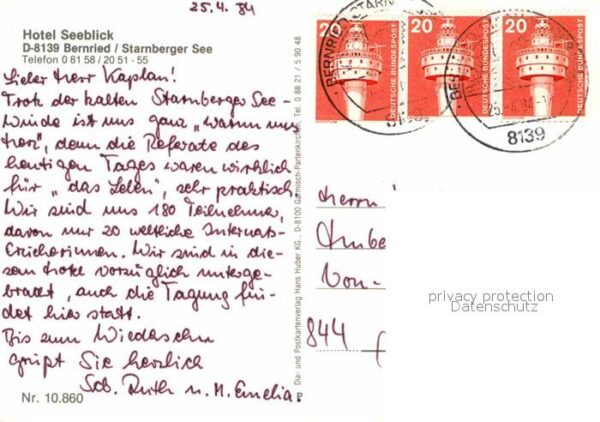 25.4.84
Hotel Seeblick
D-8139 Bernried / Starnberger See
Telefon 0 81 58 / 20 51 - 55
Lieber Herr Kaplan!
Trotz der kalten Starnberger See-
winde ist uns ganz „warm ums
Herz", denn die Referate des
heutigen Tages waren wirklich
für „das Leben", sehr praktisch.
Wir sind uns 180 Teilnehmer,
davon nur 20 weltliche Internats-
Erzieherinnen. Wir sind in die-
sem Hotel vorzüglich unterge-
bracht, auch die Tagung fin-
det hier statt.
Bis zum Wiedersehn
grüßt Sie herzlich
Sch. Ruth u. M. Emelia
Nr. 10.860
Dia- und Postkartenverlag Hans Huber KG., D-8100 Garmisch-Partenkirchen, Tel. 0 88 21 / 5 90 48
20 DEUTSCHE BUNDESPOST
20 DEUTSCHE BUNDESPOST
20 DEUTSCHE BUNDESPOST
BERNRIED STARN
8139
Herrn
Von-
844
privacy protection
Datenschutz